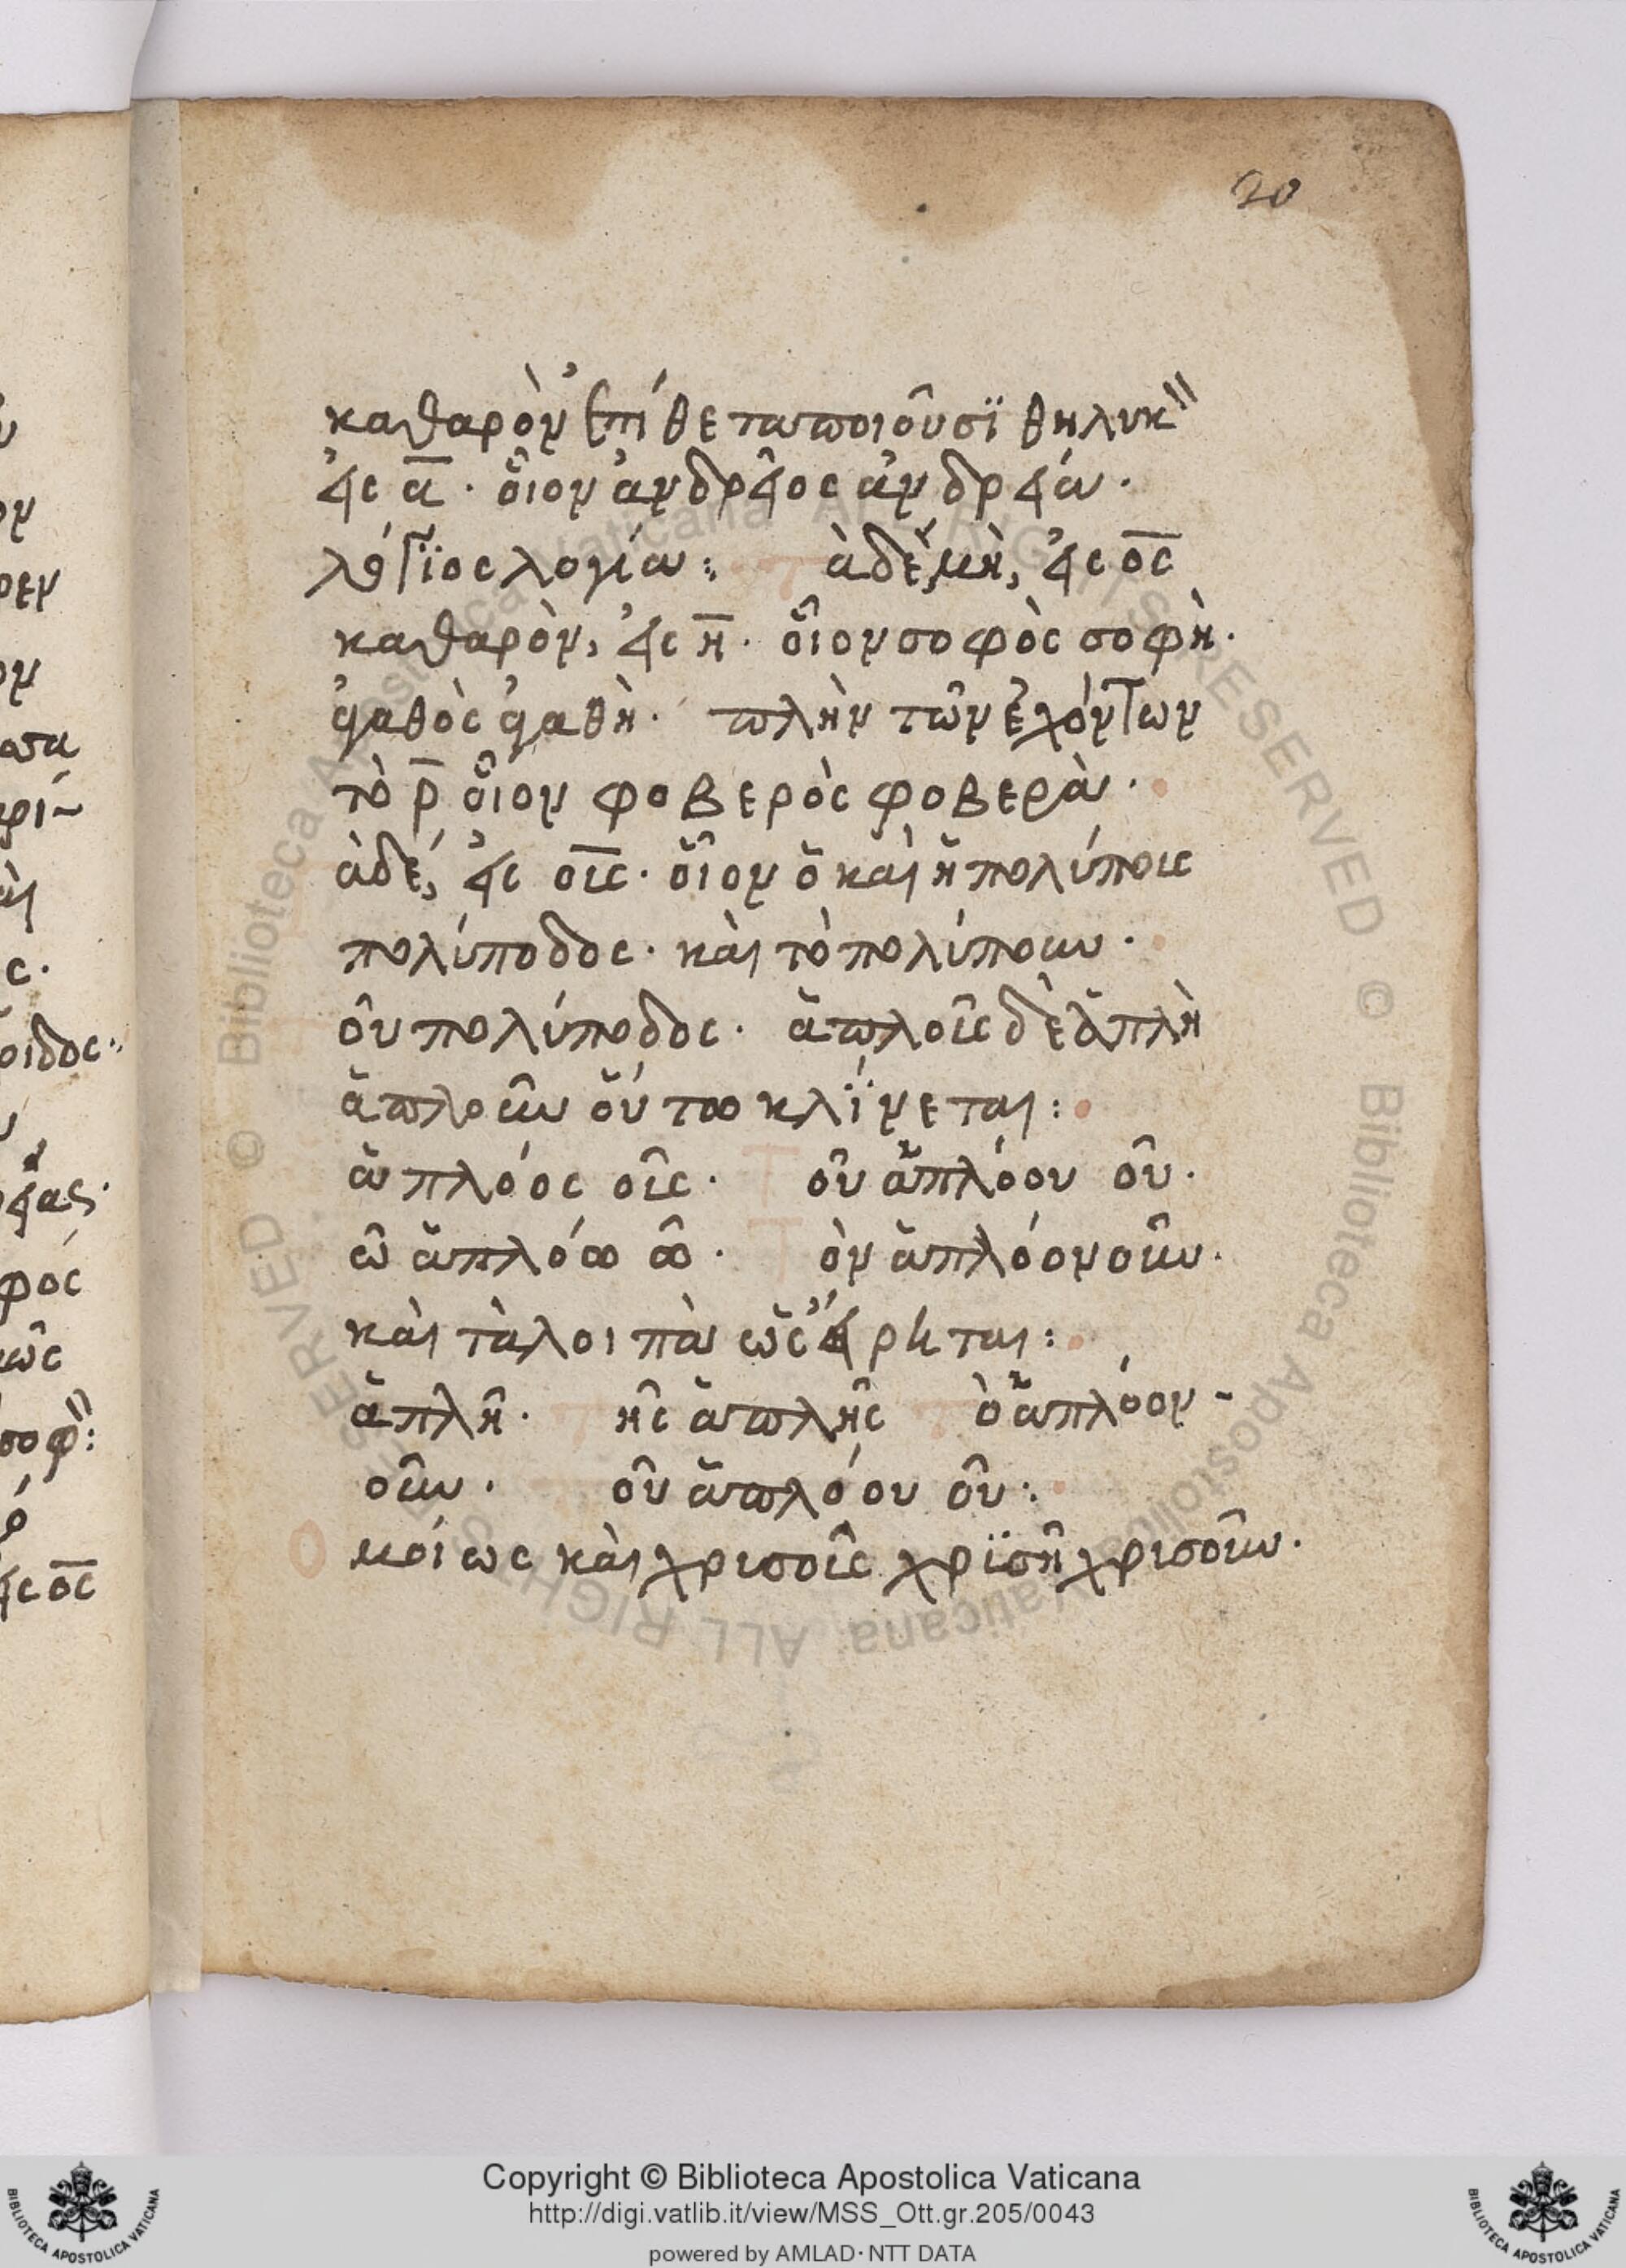 20
καθαρὸν ἐπίθεταποιοῦσϊ θηλυκ
εἰς α̅. οἷον ἀνδρεῖος ἀνδρεία.
λόγϊος λογία: ὰδὲ μὴ, εἰς ο̅ς̅
καθαρὸν, εἰς η̅. οἷον σοφὸς σοφὴ.
ἀγαθὸς ἀγαθὴ. πλὴν τῶν ἐχόντων
τὸ ρ̅ οἷον φοβερὸς φοβερὰ.
ὰδέ, εἰς ο̅ι̅ς̅. οἷον ὁ καὶ ἡ πολύποις
πολύποδος. καὶ τὸ πολύπουν.
οῦ πολύποδος. ἁπλοῖς δὲ ἁπλὴ
ἁπλοῦν οὕτω κλίνεται:
ἁπλόος οῖς. οῦ ἁπλόου οῦ.
ῶ ἁπλόω ῶ. ὸν ἁπλόον οῦν.
καὶ τὰ λοιπὰ ὡς εἴρηται:
ἁπλῆ. ῆς ἁπλῆς ὸ ἁπλόον -
οῦν. οῦ ἁπλόου οῦ:
Ομοίως καὶ χρισοῖς χρϊσῆ χρισοῦν.
ο̅ς̅
Copyright © Biblioteca Apostolica Vaticana
http://digi.vatlib.it/view/MSS_Ott.gr.205/0043
powered by AMLAD·NTT DATA
BIBLIOTECA APOSTOLICA VATICANA
BIBLIOTECA APOSTOLICA VATICANA